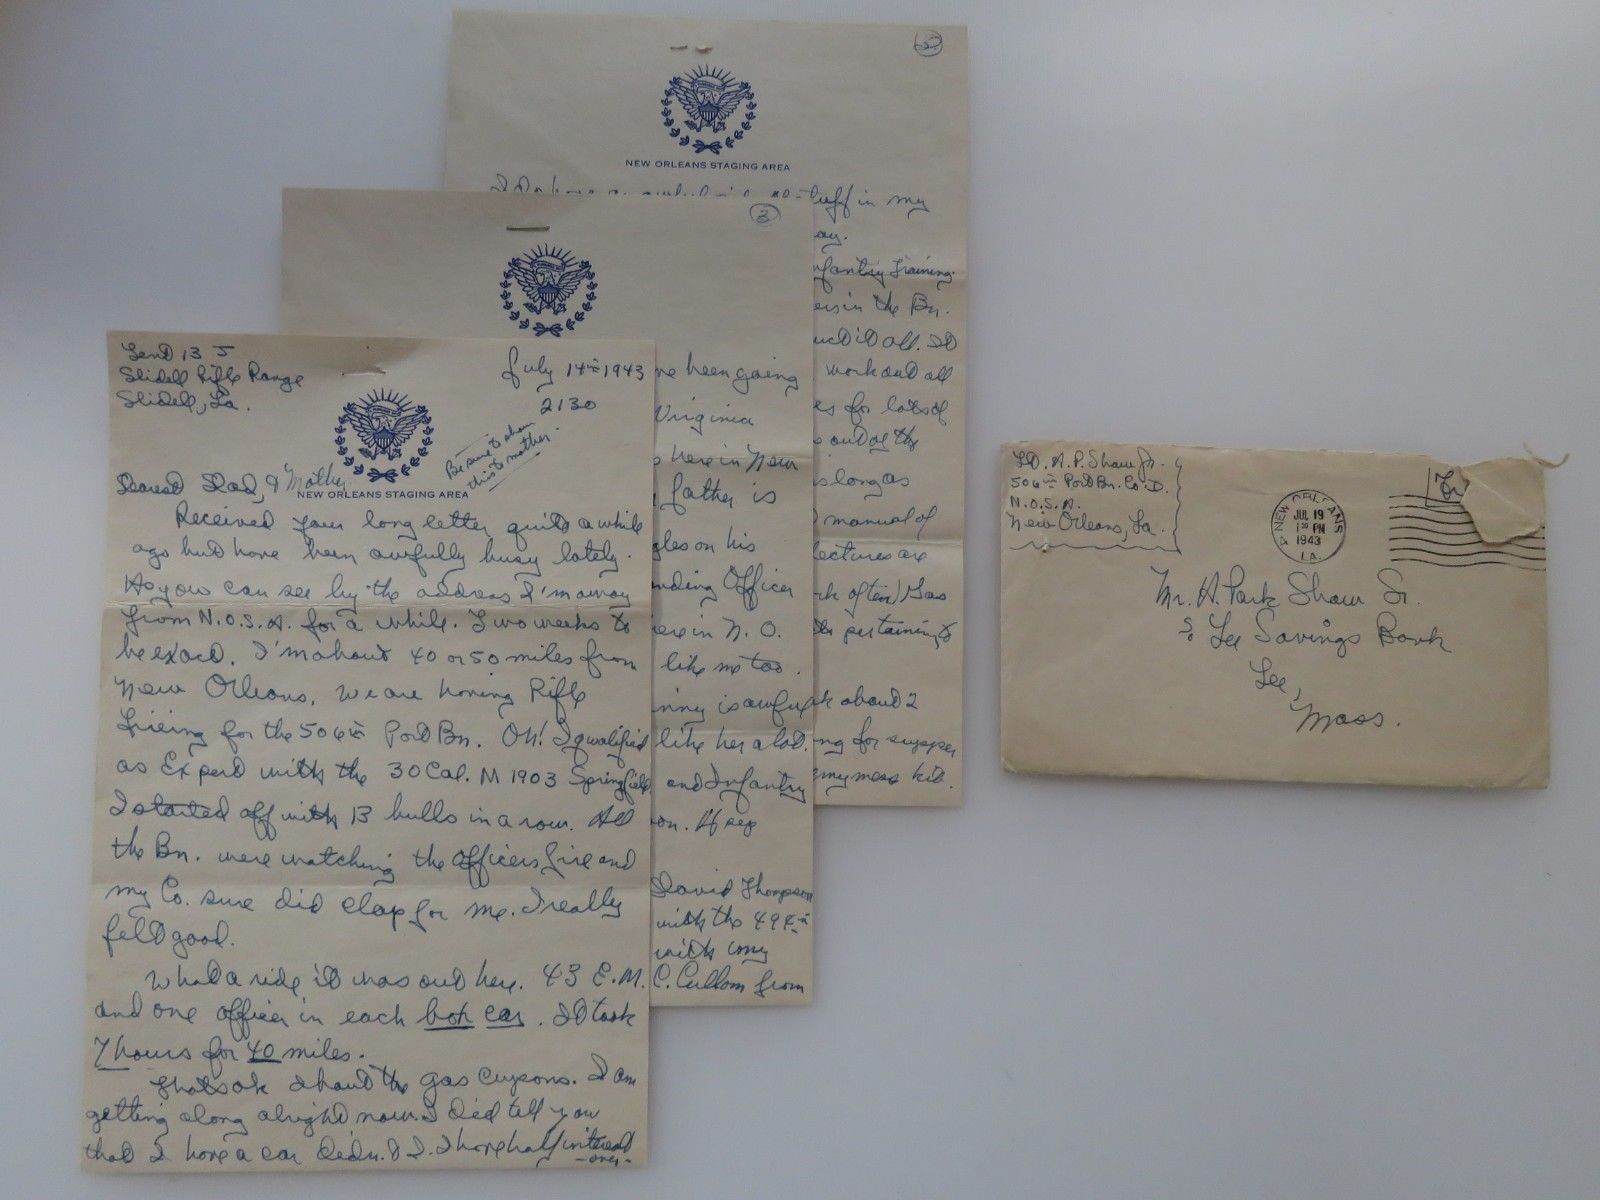 Tent 13 J
Slidell Rifle Range
Slidell, La.
July 14th 1943
2130
Be sure to show
this to mother.
Dearest Dad, & Mother
NEW ORLEANS STAGING AREA
Received your long letter quite a while
ago but have been awfully busy lately.
As you can see by the address I'm away
from N.O.S.A. for a while. Two weeks to
be exact. I'm about 40 or 50 miles from
New Orleans. We are having Rifle
Firing for the 506th Port Bn. Oh! I qualified
as Expert with the 30 Cal. M 1903 Springfield
I started off with 13 bulls in a row. All
the Bn. were watching the officers fire and
my Co. sure did clap for me. I really
felt good.
What a ride it was out here. 43 E.M.
and one officer in each box car. It took
7 hours for 40 miles.
Thats ok about the gas cupons. I am
getting along alright now. I did tell you
that I have a car didn't I. I have half interest
-over-
3
ve been going
Virginia
here in New
father is
gles on his
nding Officer
ere in N.O.
like me too.
nny is awful
like her a lot.
and Infantry
on. If sep
David Thompson
with the 494th
with my
C. Cullom from
5
NEW ORLEANS STAGING AREA
stuff in my
ay.
nfantry Training.
ers in the Bn.
uct it all. It
work and all
es for lots of
out of the
as long as
manual of
lectures are
rk often) Gas
pertaining to
k about 2
ng for supper
my mess kit.
Lt. A.P. Shaw Jr.
506th Port Bn. Co. D.
N.O.S.A.
New Orleans, La.
NEW ORLEANS
JUL 19
1 30 PM
1943
LA.
Mr. A. Park Shaw Sr.
c/o Lee Savings Bank
Lee,
Mass.